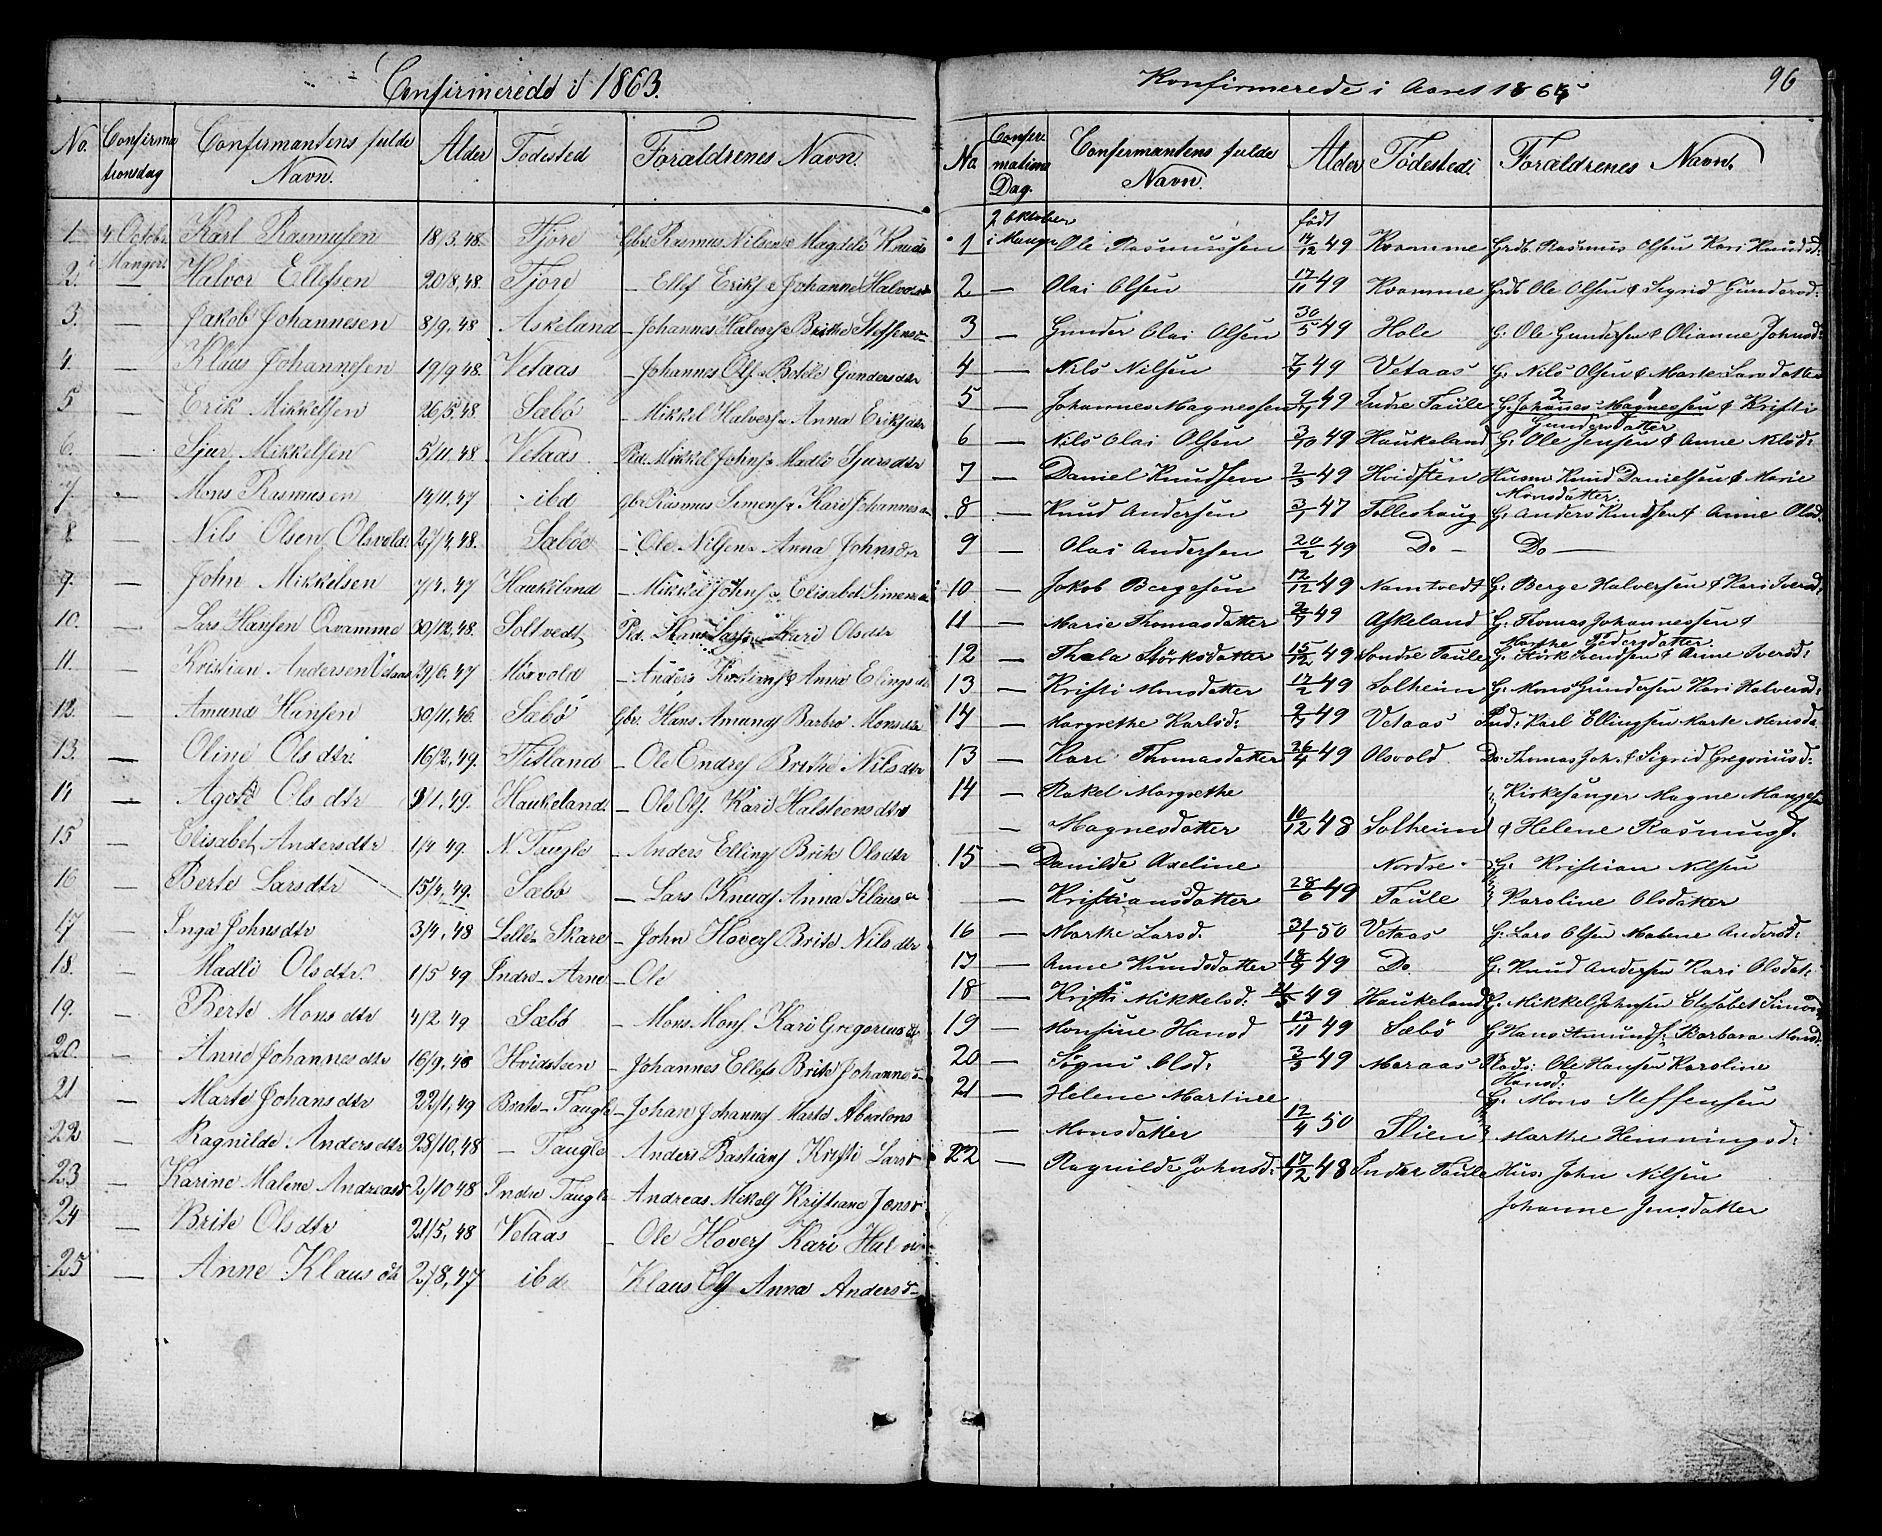 Confirmerede i 1863.
No. Confirmationsdag Confirmantens fulde Navn. Alder Födested Foræeldrenes Navn.
1. 4 Octobr i Manger Karl Rasmusen 18/3.48. Fjöre Gbr. Rasmus Nilsen & Magdele Knuds
2. — Halvor Ellefsen 20/8.48. Fjöre — Ellef Eriks & Johanne Halvors
3. — Jakob Johannesen 8/9.48 Askeland — Johannes Halvors & Brithe Steffens
4. — Klaus Johannesen 19/9 48. Vetaas — Johannes Ols & Gundersdtr
5 — Erik Mikkelsen 26/5.48. Sæbö — Mikkel Halvers & Anna Eriksdtr
6. — Sjur Mikkelsen 5/11.48. Vetaas Mikkel Johns & Madli Sjursdtr
7. — Mons Rasmusen 14/11.47 ibd Gbr Rasmus Simons & Kari Johannes
8 — Nils Olsen Olsvold. 27/4.48. Sæbö — Ole Nilsen & Anna Johnsdtr
9. — John Mikkelsen 7/4.47 Haukeland — Mikkel Johns & Elisabet Simons
10. — Lars Hansen Qvamme 30/12.48. Soltvedt Hans Lars & Kari Olsdtr
11. — Kristian Andersen 29/6.47 Morvold — Anders Kristians & Anna Elings
12. — Amund Hansen 30/11.46. Sæbö Gbr. Hans Amunds Barbro Mons
13. — Oline Olsdtr. 16/2.49. Titland — Ole Endres Brithe Nilsdtr
14 — Agote Olsdtr 9/1.49. Haukeland. — Ole Ols. Kari Halsteensdtr
15 — Elisabet Andersdtr 1/4 49. N. Taugle — Anders Ellings Brite Olsdtr
16 — Berte Larsdtr 15/4.49. Sæbö — Lars Knuds Anna Klaus
17 — Inga Johnsdtr 3/4.48 Lille Skare — John Hovers Brite Nilsdtr
18. — Madli Olsdtr. 1/5 49 Indre Arne — Ole
19. — Berte Monsdtr 4/2 49 Sæbö — Mons Mons Kari Gregorius
20. — Anne Johannesdtr 16/9.48 Hvidsteen — Johannes Ellefs Brite Johannes
21 — Marte Johansdtr 22/1.49 Taugle — Johan Johannes Marte Absalons
22 — Ragnilde Andersdtr 28/10.48 — Taugle Anders Bastians Kristi Lars
23 — Karine Malene Andreas 2/10 48 Indre Taugle Andreas Mikels Kristiane Jens
24 — Brite Olsdtr 21/5.48 Vetaas — Ole Hovers Kari Hal
25 — Anne Klausdtr 27/8.47 ibd Klaus Ols Anna Anders
Konfirmerede i Aaret 1864 96
No Confirmations Dag. Confirmantens fulde Navn. Alder Födested: Foræeldrenes Navn.
2 Oktober i Manger født
1 Ole Rasmussen 14/12 49 Kvamme Grdb. Rasmus Olsen Kari Knudsd:
2 — Olai Olsen 17/11 49 Kvamme Grdb Ole Olsen & Sigrid Gundersd:
3 — Gunder Olai Olsen 30/5 49 Hole G: Ole Gundersen & Olianne Johnsd:
4 — Nils Nilsen 7/9 49 Vetaas G: Nils Olsen & Marte Larsdatter
5 — Johannes Magnessen 49 Indre Taule G: Johannes Magnessen & Kristi
Gundersdatter
6 — Nils Olai Olsen 3/10 49 Haukeland G: Ole Jensen & Anne Nilsd:
7 — Daniel Knudsen 2/3 49 Hvidsten Husm Knud Danielsen & Marie
Monsdatter.
8 — Knud Andersen 47 Tolleshaug G: Anders Knudsen & Anne Olsd:
9 — Olai Andersen 20/2 49 Do — Do —
10 — Jakob Bergesen 12/12 49 Namtvedt G: Berge Halversen & Kari Iversd:
11 — Marie Thomasdatter 49 Askeland G: Thomas Johannessen &
Marthe Pedersdatter
12 — Thala Störksdatter 15/12 49 Söndre Taule G: Knudsen & Anne Iversd:
13 — Kristi Monsdatter 17/2 49 Solheim G: Mons Gundersen Kari Halversd:
14 — Margrethe Karlsd: 49 Vetaas Ind: Karl Ellingsen Marte Monsda
13 — Kari Thomasdatter 26/4 49 Olsvold Do Thomas Joh. & Sigrid Gregoriusd:
14 — Rakel Margrethe Kirkesanger Magne
— Magnesdatter 10/12 48 Solheim & Helene Rasmusd.
15 — Danilde Axeline Nordre G: Kristian Nilsen
— Kristiansdatter 28/6 49 Taule Karoline Olsdatter
16 — Marthe Larsd. 50 Vetaas G: Lars Olsen Malene Andersd:
17 — Anne Knudsdatter 18/9 49 Do. G: Knud Andersen Kari Olsdat:
18 — Kristi Mikkelsd. 49 Haukeland G: Mikkel Johnsen Elisabet Simons
19 — Monsine Hansd 13/11 49 Sæbö G Hans Amunds: Barbara Monsd.
20 — Sögni Olsd: 3/3 49 Maraas Plads: Ole Hansen Karoline
Hansd:
21 — Helene Martinee G: Mons Steffensen
— Monsdatter 12/4 50 Marthe Hemmingsd:
22 — Ragnilde Johnsd: 17/12 48 Inder Taule Hus: John Nilsen
Johanne Jensdatter